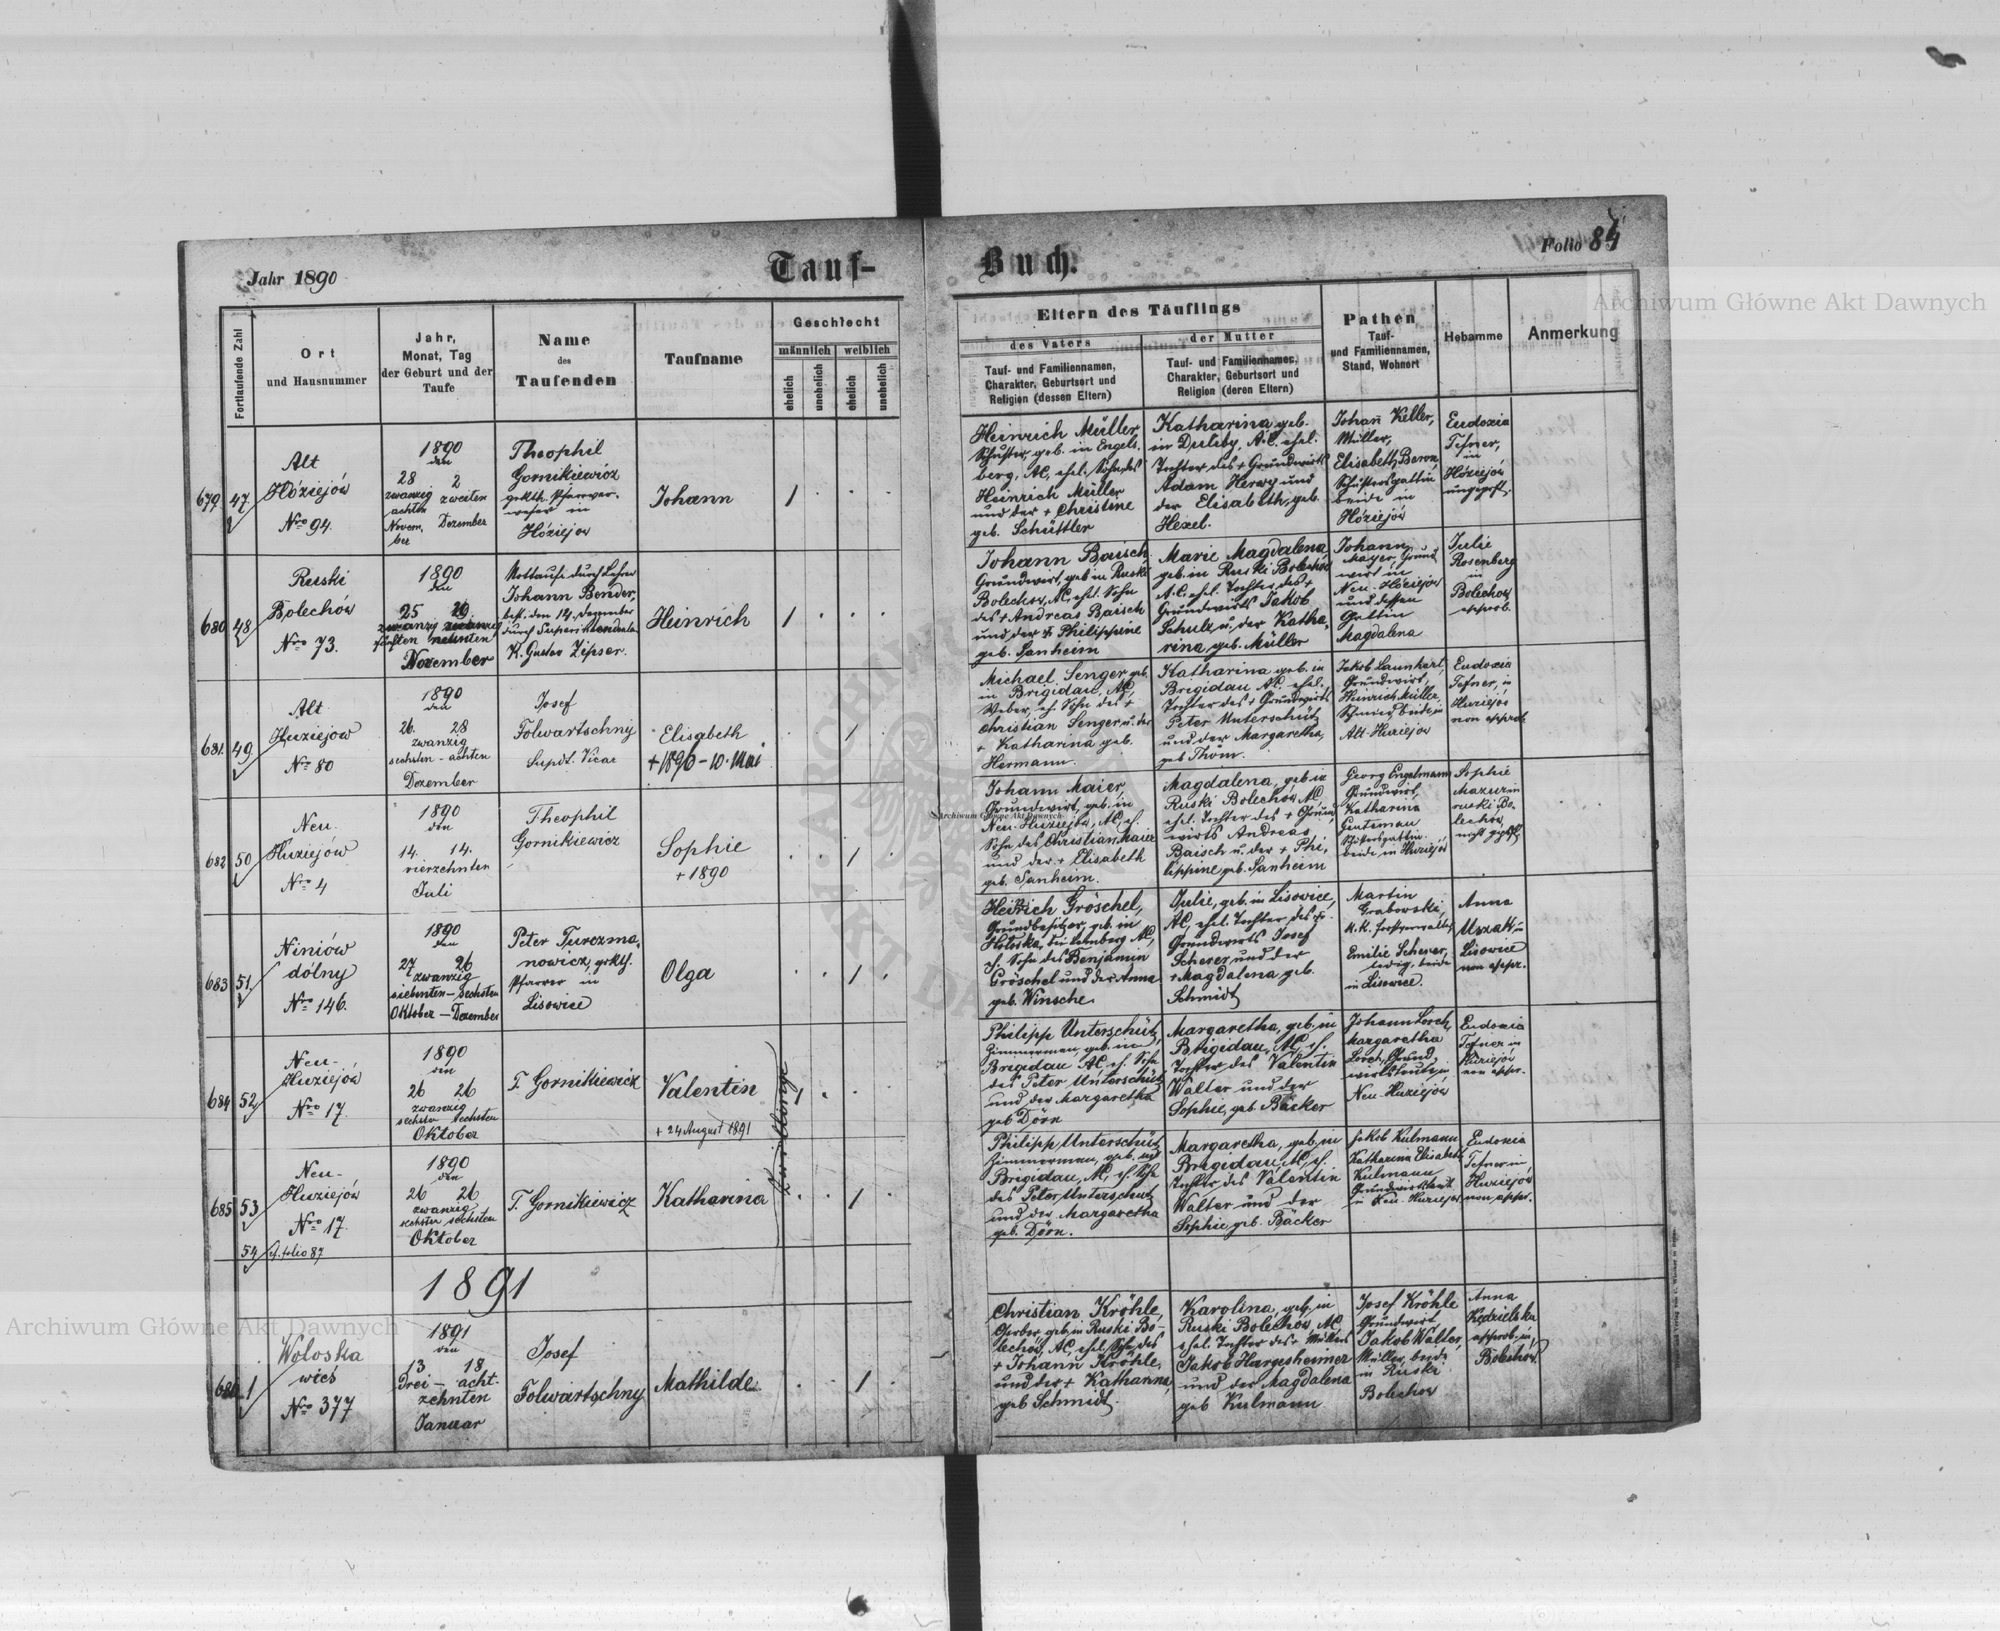 Jahr 1890
Tauf-
Buch.
Folio 84
Fortlaufende Zahl
Ort
und Hausnummer
Jahr,
Monat, Tag
der Geburt und der
Taufe
Name
des
Taufenden
Taufname
Geschlecht
männlich
weiblich
ehelich
unehelich
ehelich
unehelich
Eltern des Täuflings
des Vaters
der Mutter
Tauf- und Familiennamen,
Charakter, Geburtsort und
Religion (dessen Eltern)
Tauf- und Familiennamen,
Charakter, Geburtsort und
Religion (deren Eltern)
Pathen
Tauf-
und Familiennamen,
Stand, Wohnort
Hebamme
Anmerkung
679 47
Alt
Hóziejów
Nro 94.
1890
den
28 2
zwanzig zweiten
achten
Novem, Dezember
ber
Theophil
Gornikiewicz
grkth. Pfarrver-
weser in
Hóziejow
Johann
1
Heinrich Müller
Schuster, geb. in Engels
berg, AC, ehel. Sohn des
Heinrich Müller
und der + Christine
geb. Schüttler
Katharina geb.
in Duliby, A.C. ehel.
Tochter des + Grundwirts
Adam Herwy und
der Elisabeth, geb.
Hexel.
Johan̄ Keller,
Müller,
Elisabeth
Schustersgattin
beide in
Hóziejów
Eudoxia
Tefner,
in
Hóziejów
ungeprft.
680 48
Ruski
Bolechów
Nro 73.
1890
den
25 29
zwanzig zwanzig
fünften neunten
November
Nottaufe durch Lehrer
Johann Bender,
best. den 14. Dezember
durch Superintendenten
K. Gustav Zipser.
Heinrich
1
Johann Baisch
Grundwirt, geb in Ruski
Bolechow, AC, ehel. Sohn
des + Andreas Baisch
und der + Philippine
geb. Sanheim
Marie Magdalena
geb. in Ruski Bolechów
A.C. ehel. Tochter des +
Grundwirts Jakob
Schulz u. der Katha,
rina, geb. Müller
Johann
Mayer, Grund
wirt in
Neu-Hóziejów
und dessen
Gattin
Magdalena
Julie
Rosenberg
in
Bolechow
approb.
681 49
Alt
Huziejow
Nro 80
1890
den
26. 28
zwanzig
sechsten - achten
Dezember
Josef
Folwartschny
Supdt. Vicar
Elisabeth
+ 1890 - 10. Mai
1
Michael Senger geb.
in Brigidau, AC,
Weber, eh. Sohn des +
Christian Senger u. der
+ Katharina geb.
Hermann.
Katharina geb. in
Brigidau AC. ehel.
Tochter des + Grundwirts
Peter Unterschütz
und der Margaretha,
geb Thöm.
Jakob Launhart,
Grundwirt,
Heinrich Müller
Schmied, beide in
Alt-Huziejow
Eudoxia
Tefner, in
Huziejów
non approb.
682 50
Neu-
Huziejów
Nro 4
1890
den
14. 14.
vierzehnten
Juli
Theophil
Gornikiewicz
Sophie
+ 1890
1
Johann Maier
Grundwirt, geb. in
Neu-Huziejów, AC, eh.
Sohn des Christian Maier
und der + Elisabeth
geb. Sanheim.
Magdalena, geb in
Ruski Bolechów AC,
ehel. Tochter des + Grund
wirts Andreas
Baisch u. der + Phi,
lippine geb. Sanheim
Georg Engelmann
Grundwirt,
Katharina
Guteman
beide in Huziejów
Sophie
Mazur in
ruski Bo,
lechów,
683 51
Niniów
dólny
Nro 146.
1890
den
27 26
zwanzig
siebenten - sechsten
Oktober - Dezember
Peter Turczma,
nowicz, grkth.
Pfarrer in
Lisowice
Olga
1
Heinrich Gröschel,
Grundbesitzer, geb. in
bei Lemberg AC,
eh. Sohn des Benjamin
Gröschel und der Anna
geb. Winsche
Julie, geb. in Lisowice,
AC, ehel. Tochter des +
Grundwirts Josef
Scherer und der
+ Magdalena geb.
Schmidt
Martin
Grabowski,
K.K. Forstverwalter,
Emilie Scherer,
ledig, beide
in Lisowice.
Anna
Lisowice
non appr.
684 52
Neu-
Huziejów
Nro 17.
1890
den
26 26
zwanzig
sechsten sechsten
Oktober
T. Gornikiewicz
Valentin
+ 24 August 1891
1
Zwillinge
Philipp Unterschütz,
Zimmerman, geb. in
Brigidau AC, eh. Sohn
des Peter Unterschütz
und der Margaretha
geb Dörn
Margaretha, geb. in
Brigidau, AC, eh.
Tochter des Valentin
Walter und der
Sophie, geb. Bäcker
Johann Lorch,
Margaretha
Lorch, Grund,
wirtsleute in
Neu-Huziejów
Eudoxia
Tefner in
Huziejów
non appr.
685 53
Neu-
Huziejów
Nro 17.
1890
den
26 26
zwanzig
sechsten sechsten
Oktober
T. Gornikiewicz
Katharina
1
Philipp Unterschütz
Zimmerman, geb. in
Brigidau, AC, eh. Sohn
des Peter Unterschütz
und der Margaretha
geb. Dörn.
Margaretha, geb. in
Brigidau, AC, eh.
Tochter des Valentin
Walter und der
Sophie geb. Bäcker
Jakob Kulmann
Katharina Elisabeth
Kulmann
Grundwirtsleute
in Neu-Huziejów
Eudoxia
Tefner in
Huziejów
non appr.
54 cf. folio 87
1891
686 1
Woloska
wieś
Nro 377
1891
den
13 18
Drei - acht-
zehnten
Januar
Josef
Folwartschny
Mathilde
1
Christian Kröhle,
Gerber, geb, in Ruski Bo-
lechów, AC, ehel. Sohn des
+ Johann Kröhle,
und der + Katharina,
geb Schmidt.
Karolina, geb. in
Ruski Bolechów, AC
ehel. Tochter des + Müllers
Jakob Hargesheimer
und der Magdalena
geb Kulmann
Josef Kröhle
Grundwirt,
Jakob Walter,
Müller, beide
in Ruski
Bolechow
Anna
Kędzielska
approb. in
Bolechów
Archiwum Główne Akt Dawnych
Archiwum Główne Akt Dawnych
Archiwum Główne Akt Dawnych